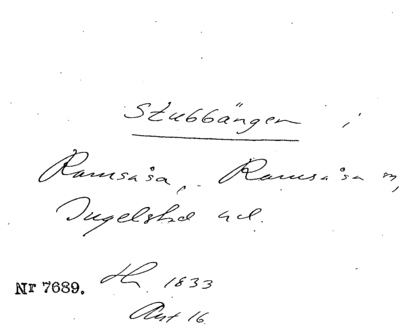 Stubbängen i
Ramsåsa, Ramsåsa sn,
Ingelstad hd.
Nr 7689. Hn 1833
Akt 16